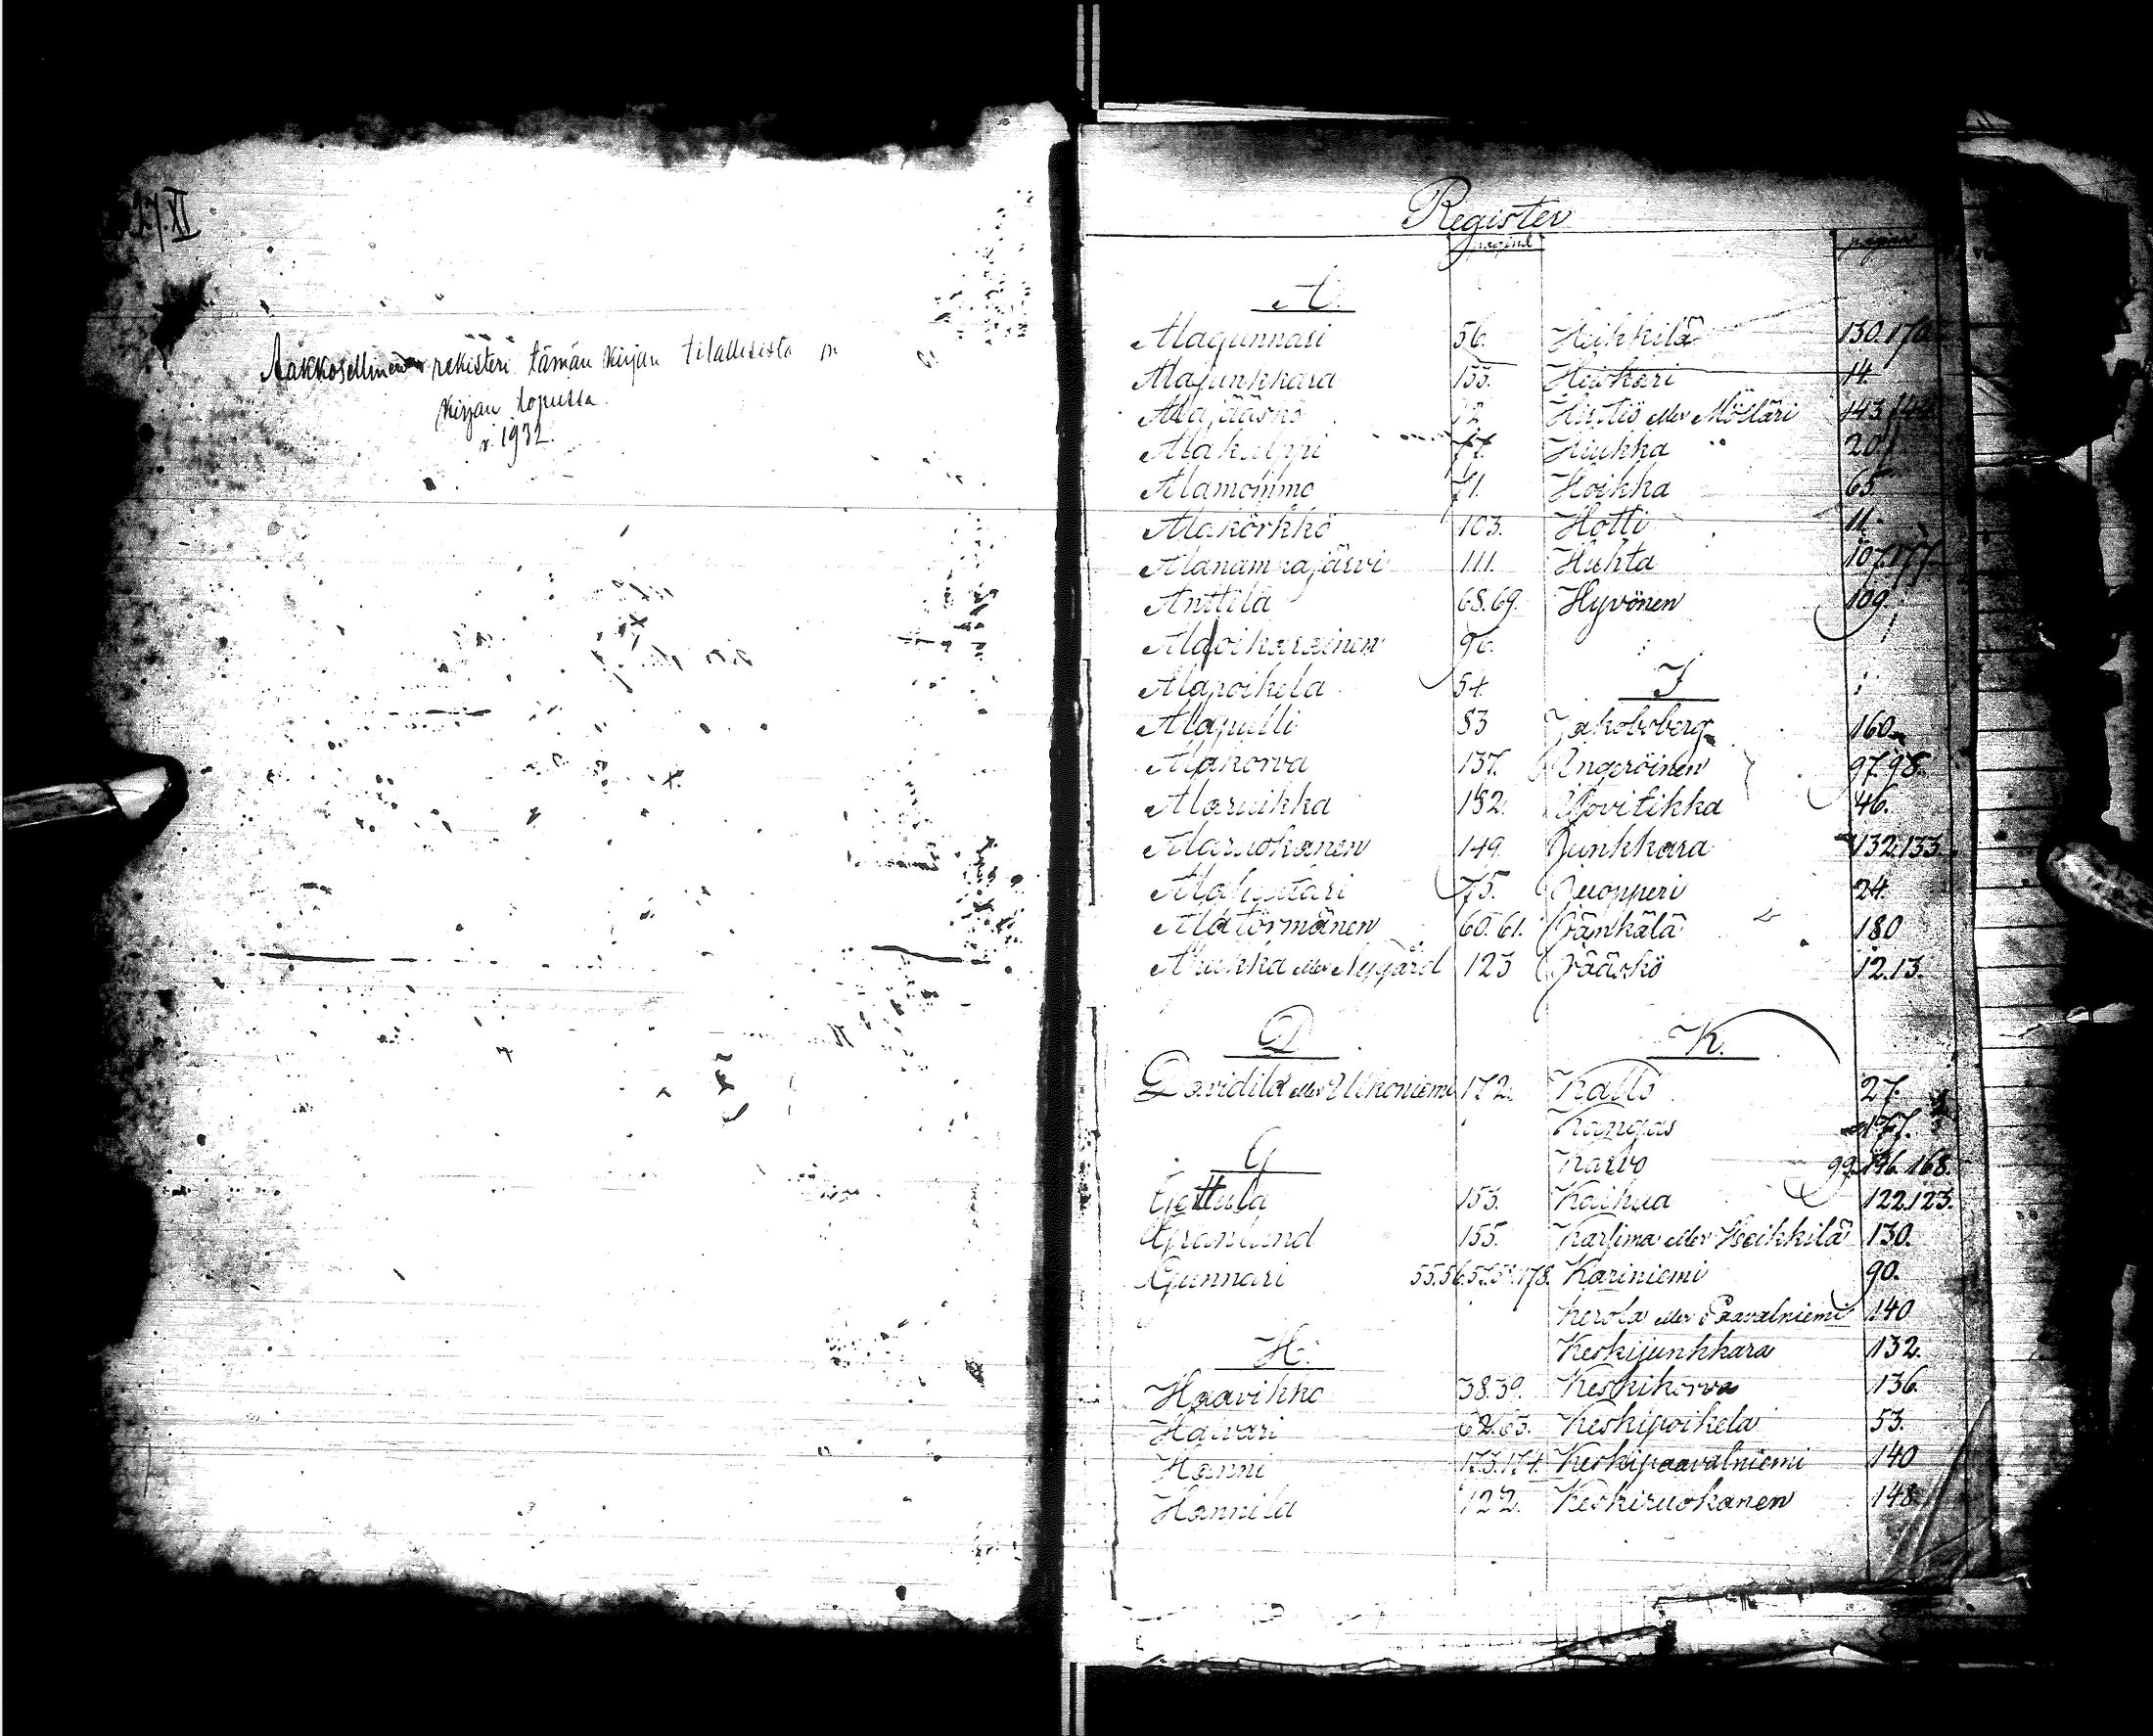 Aakkosellinen rekisteri tämän kirjan tilallisista on
kirjan lopussa.
v. 1932.
Register
pagina
A.
Alagunnari 56.
Alajunkkara 133.
Alajääskö 12
Alakulppi 77.
Alamommo 71.
Alakörkkö 103.
Alanamrajärvi 111.
Anttila 68.69.
Alaoikarainen 96.
Alapoikela 54.
Alapulli 83
Alakorva 137.
Alaruikka 182.
Alaruokanen 149.
Alahuttari 75.
Alatörmänen 60.61.
Ahukka eller Nygård 123
D
Davidila eller Ukoniemi 172.
G
Gettula 153.
Granlund 155.
Gunnari 55.56.57.58.178.
H.
Haavikko 38.39.
Halvari 62.63.
Hanni 173.174.
Hannila 122.
pagina
Heikkilä 130.170
Heiskari 14.
Hirtiö eller Mölläri 143.144
Hiukka 20.
Hoikka 65.
Hotti 11.
Huhta 107.177.
Hyvönen 109.
J
Jakobsberg 160.
Ingeröinen 97.98.
Jovitikka 46.
Junkkara 132.133
Juopperi 24.
Jänkälä 180
Jääskö 12.13.
K.
Kallo 27.
Kangas 177.
Karvo 99.196.168.
Kaihua 122.123.
Karjima eller Heikkilä 130.
Kariniemi 90.
Kerola eller Paavalniemi 140
Keskijunkkara 132.
Keskikorva 136.
Keskipoikela 53.
Keskipaavalniemi 140
Keskiruokanen 148